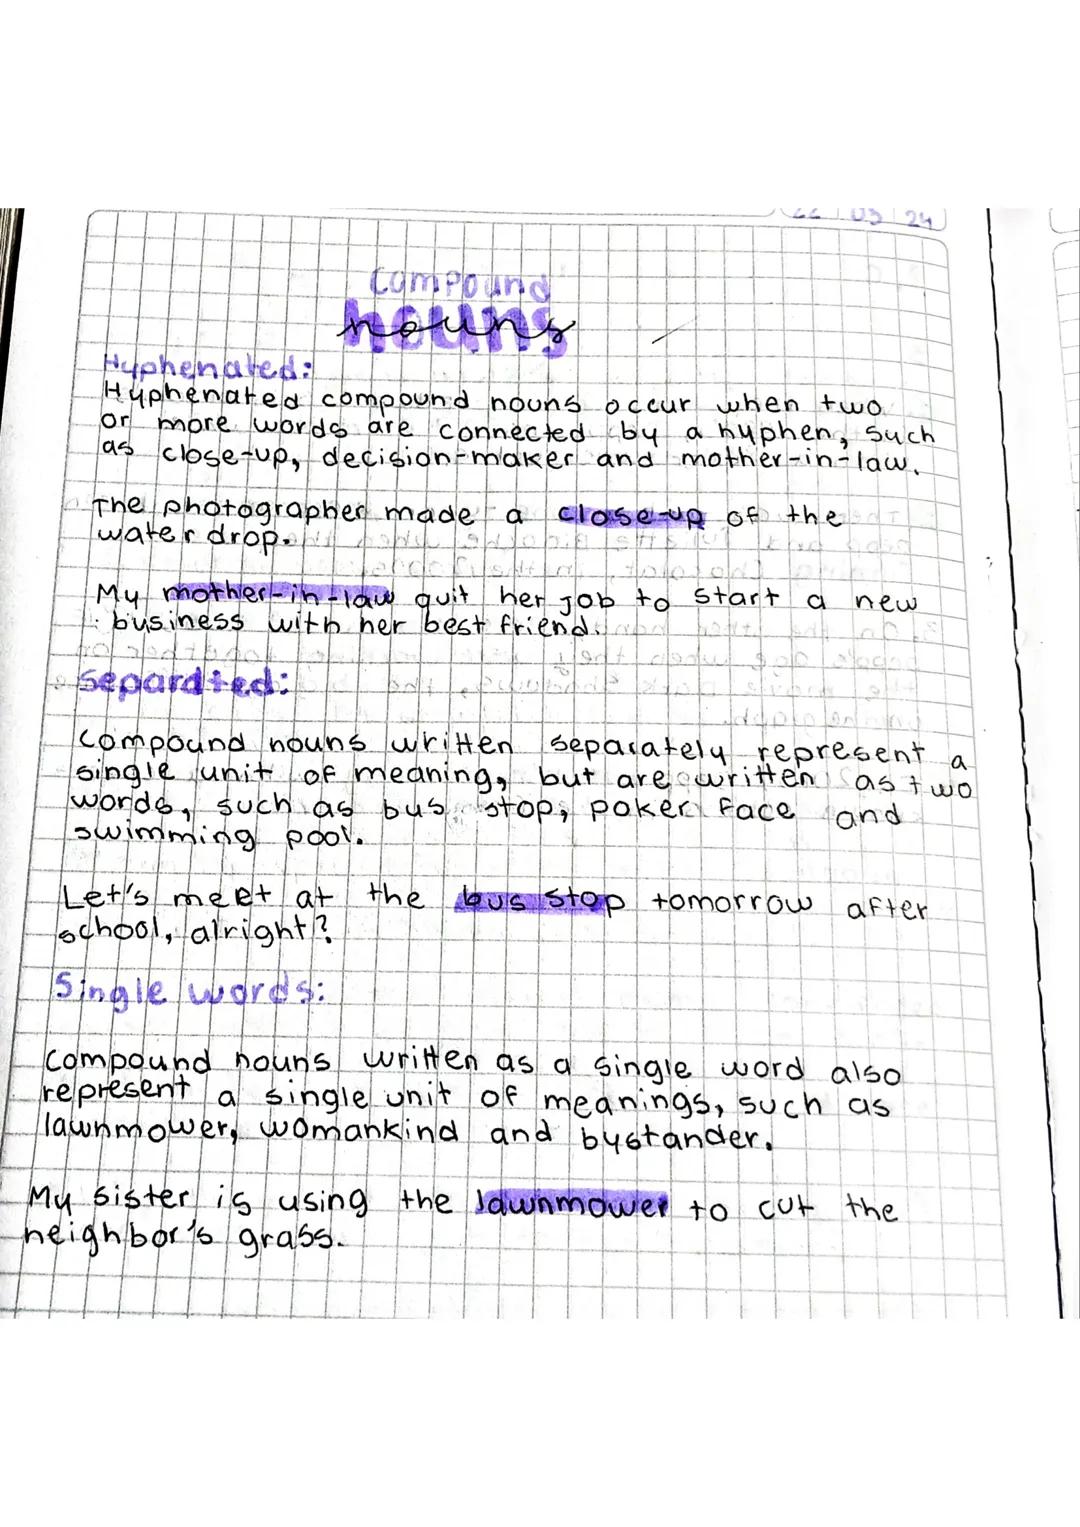 22 03 24
Compound
nouns
Hyphenated:
Hyphenated compound nouns occur when two
or more words are connected by a hyphen, such
as close-up, decision-maker and mother-in-law.
The photographer made a close-up of the
water drop.
My mother-in-law quit her job to start a new
business with her best friend.
Separated:
Compound nouns written separately represent a
single unit of meaning, but are written as two
words, such as bus stop, poker face and
swimming pool.
Let's meet at the bus stop tomorrow after
school, alright?
Single words:
Compound nouns written as a single word also
represent a single unit of meanings, such as
lawnmower, womankind and bystander.
My sister is using the lawnmower to cut the
neighbor's grass.